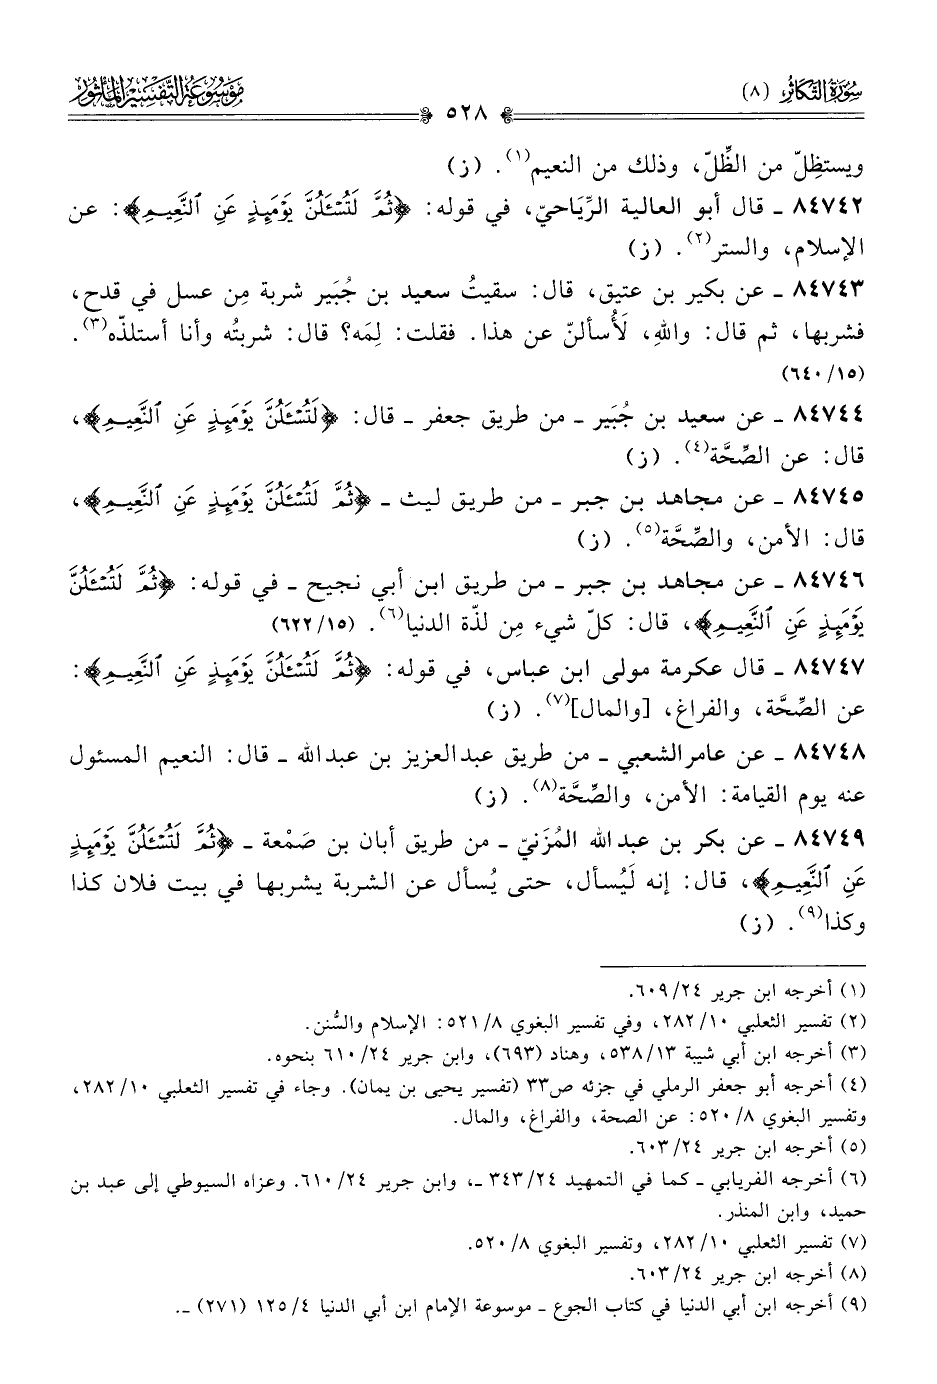 سُورَةُ التَّكَاثُرِ (٨)
٥٢٨
مَوْسُوعَةُ التَّفْسِيرِ المَأْثُورِ
ويستظِلّ من الظِّلّ، وذلك من النعيم(١). (ز)
٨٤٧٤٢ ـ قال أبو العالية الرِّيَاحيّ، في قوله: ﴿ثُمَّ لَتُسْـَٔلُنَّ يَوْمَئِذٍ عَنِ ٱلنَّعِيمِ﴾: عن
الإسلام، والستر(٢). (ز)
٨٤٧٤٣ ـ عن بكير بن عتيق، قال: سقيتُ سعيد بن جُبَير شربة مِن عسل في قدح،
فشربها، ثم قال: واللهِ، لَأُسألنّ عن هذا. فقلت: لِمَه؟ قال: شربتُه وأنا أستلذّه(٣).
(١٥/ ٦٤٠)
٨٤٧٤٤ ـ عن سعيد بن جُبَير ـ من طريق جعفر ـ قال: ﴿لَتُسْـَٔلُنَّ يَوْمَئِذٍ عَنِ ٱلنَّعِيمِ﴾،
قال: عن الصِّحَّة(٤). (ز)
٨٤٧٤٥ ـ عن مجاهد بن جبر ـ من طريق ليث ـ ﴿ثُمَّ لَتُسْـَٔلُنَّ يَوْمَئِذٍ عَنِ ٱلنَّعِيمِ﴾،
قال: الأمن، والصِّحَّة(٥). (ز)
٨٤٧٤٦ ـ عن مجاهد بن جبر ـ من طريق ابن أبي نجيح ـ في قوله: ﴿ثُمَّ لَتُسْـَٔلُنَّ
يَوْمَئِذٍ عَنِ ٱلنَّعِيمِ﴾، قال: كلّ شيء مِن لذّة الدنيا(٦). (١٥/ ٦٢٢)
٨٤٧٤٧ ـ قال عكرمة مولى ابن عباس، في قوله: ﴿ثُمَّ لَتُسْـَٔلُنَّ يَوْمَئِذٍ عَنِ ٱلنَّعِيمِ﴾:
عن الصِّحَّة، والفراغ، [والمال](٧). (ز)
٨٤٧٤٨ ـ عن عامر الشعبي ـ من طريق عبد العزيز بن عبد الله ـ قال: النعيم المسئول
عنه يوم القيامة: الأمن، والصِّحَّة(٨). (ز)
٨٤٧٤٩ ـ عن بكر بن عبد الله المُزَنيّ ـ من طريق أبان بن صَمْعة ـ ﴿ثُمَّ لَتُسْـَٔلُنَّ يَوْمَئِذٍ
عَنِ ٱلنَّعِيمِ﴾، قال: إنه لَيُسأل، حتى يُسأل عن الشربة يشربها في بيت فلان كذا
وكذا(٩). (ز)
(١) أخرجه ابن جرير ٢٤/ ٦٠٩.
(٢) تفسير الثعلبي ١٠/ ٢٨٢، وفي تفسير البغوي ٨/ ٥٢١: الإسلام والسُّنن.
(٣) أخرجه ابن أبي شيبة ١٣/ ٥٣٨، وهناد (٦٩٣)، وابن جرير ٢٤/ ٦١٠ بنحوه.
(٤) أخرجه أبو جعفر الرملي في جزئه ص٣٣ (تفسير يحيى بن يمان). وجاء في تفسير الثعلبي ١٠/ ٢٨٢،
وتفسير البغوي ٨/ ٥٢٠: عن الصحة، والفراغ، والمال.
(٥) أخرجه ابن جرير ٢٤/ ٦٠٣.
(٦) أخرجه الفريابي ـ كما في التمهيد ٢٤/ ٣٤٣ ـ، وابن جرير ٢٤/ ٦١٠. وعزاه السيوطي إلى عبد بن
حميد، وابن المنذر.
(٧) تفسير الثعلبي ١٠/ ٢٨٢، وتفسير البغوي ٨/ ٥٢٠.
(٨) أخرجه ابن جرير ٢٤/ ٦٠٣.
(٩) أخرجه ابن أبي الدنيا في كتاب الجوع ـ موسوعة الإمام ابن أبي الدنيا ٤/ ١٢٥ (٢٧١) ـ.